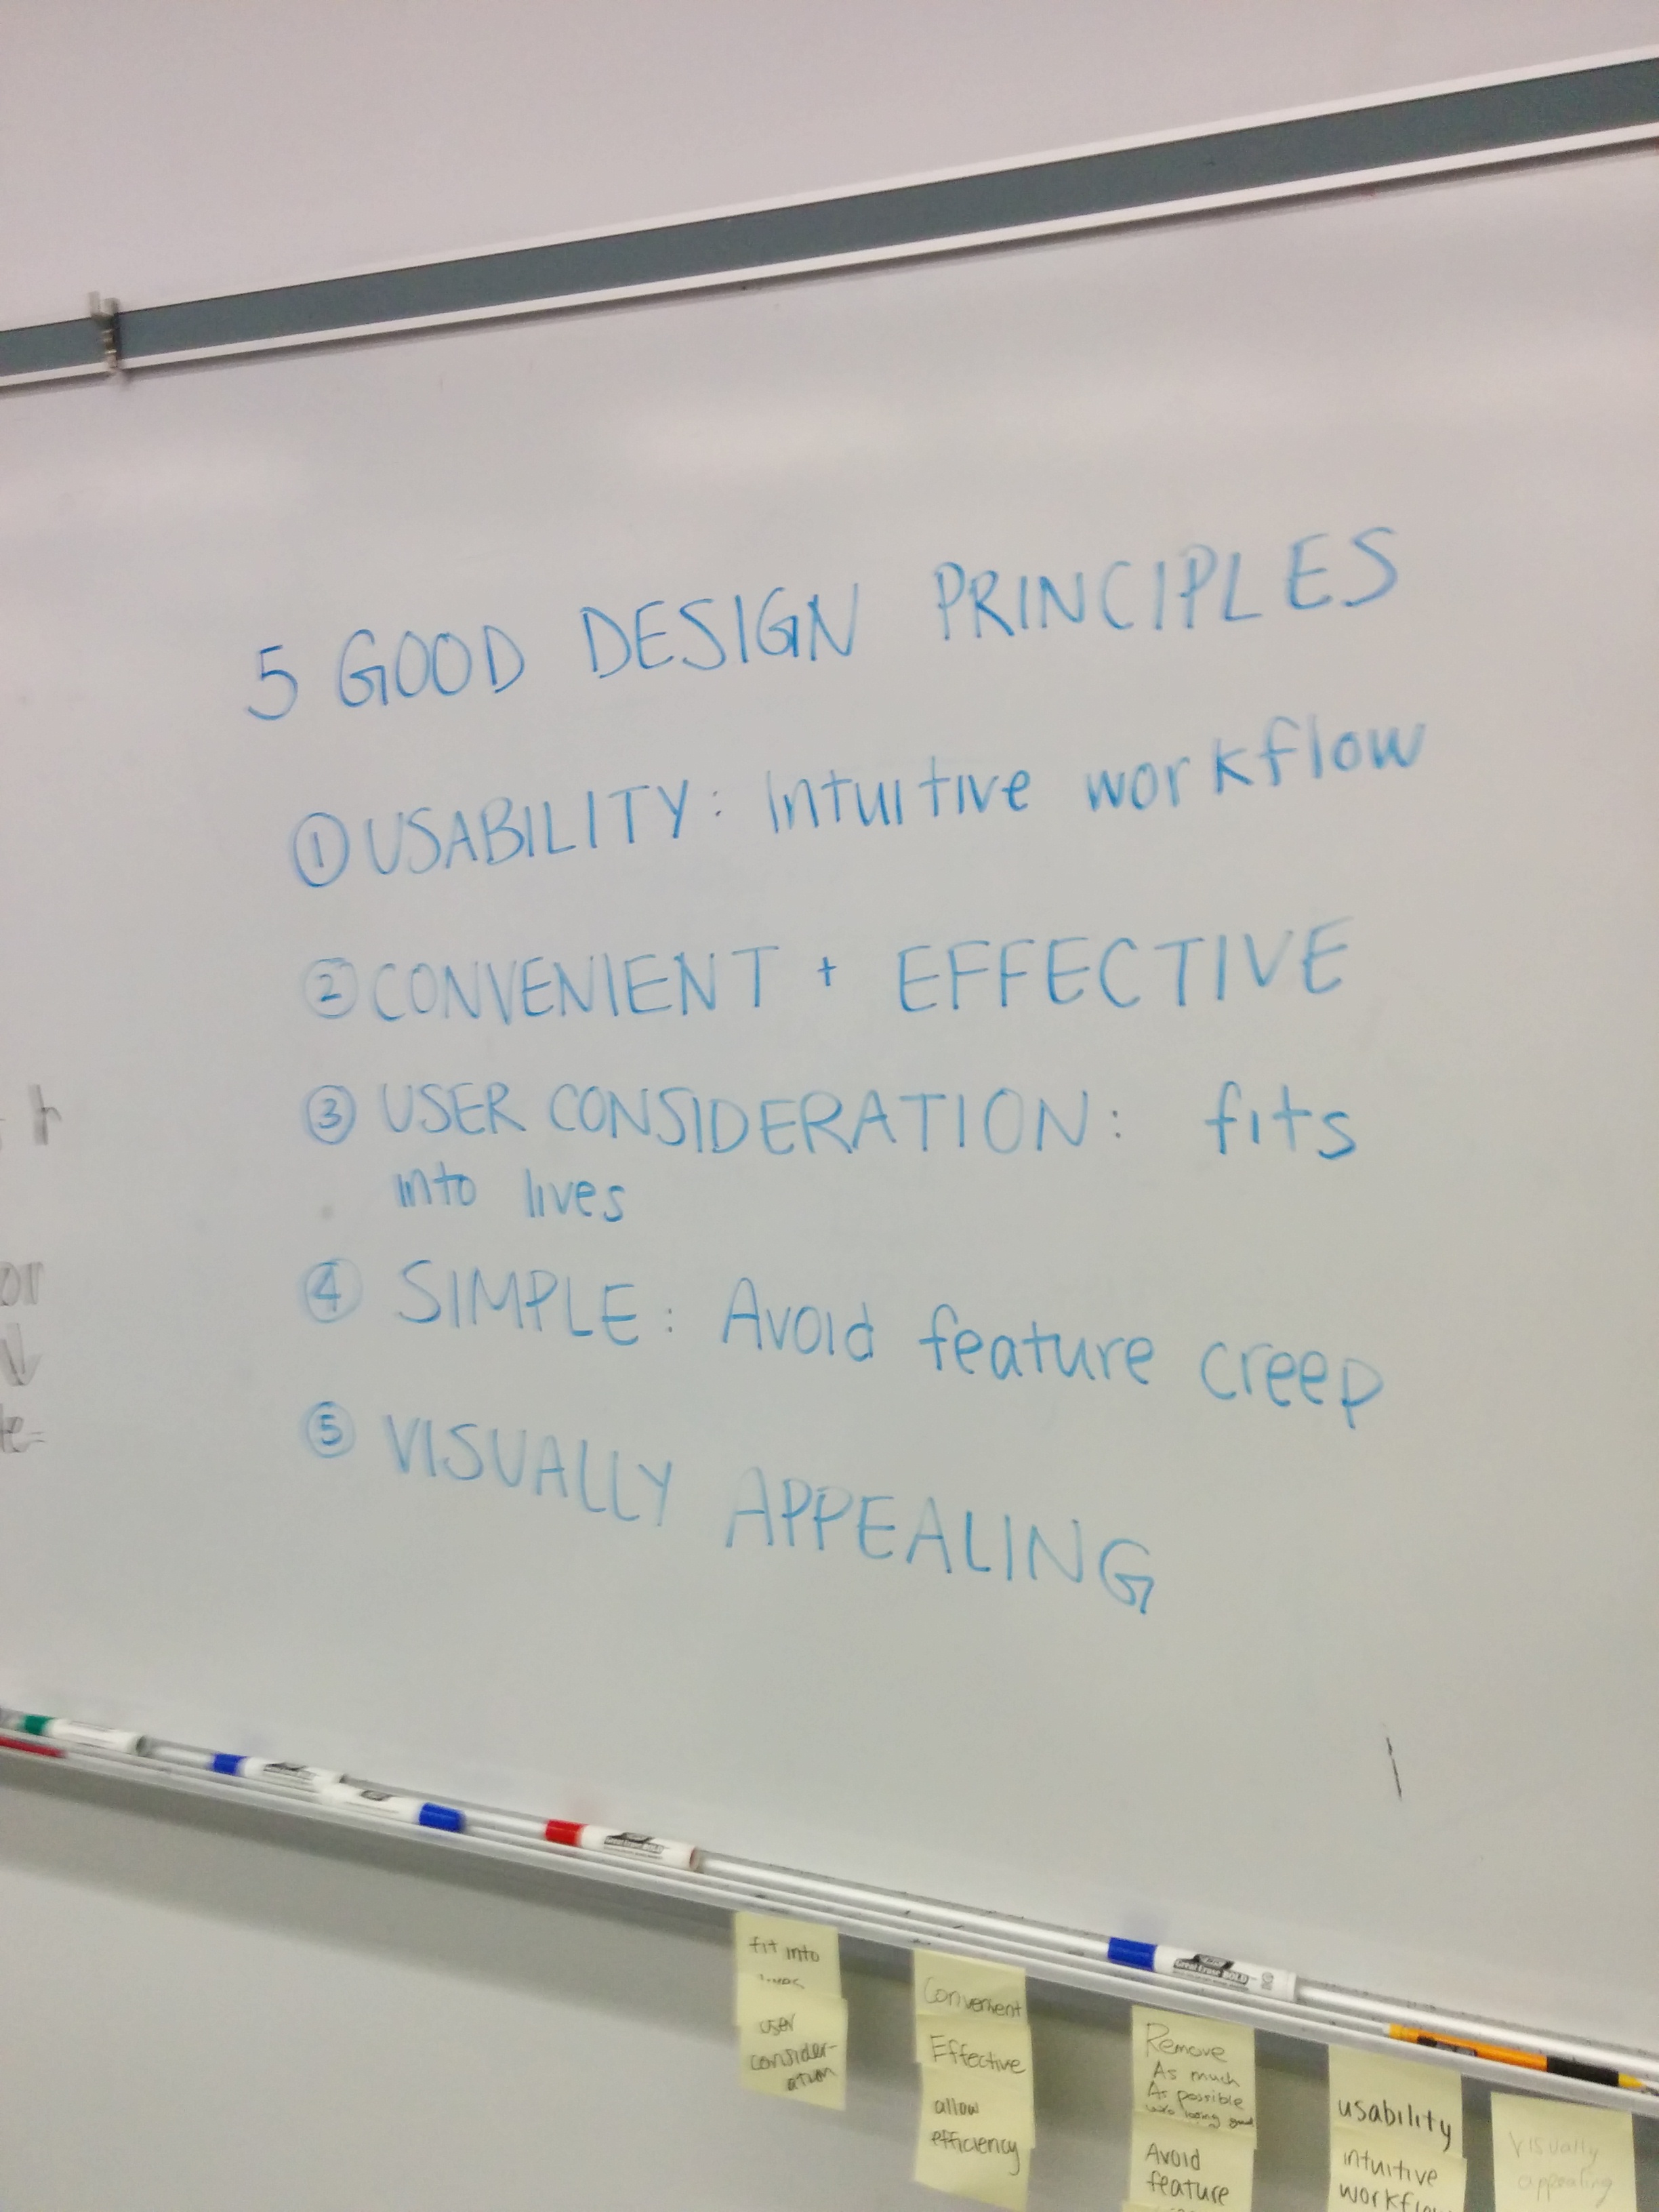 5 GOOD DESIGN PRINCIPLES
① USABILITY: Intuitive workflow
② CONVENIENT + EFFECTIVE
③ USER CONSIDERATION: fits
into lives
④ SIMPLE: Avoid feature creep
⑤ VISUALLY APPEALING
fit into
user
consider-
ation
Convenient
Effective
allow
efficiency
Remove
As much
As possible
Avoid
feature
usability
intuitive
workflow
visually
appealing
Great Erase BOLD
Great Erase BOLD